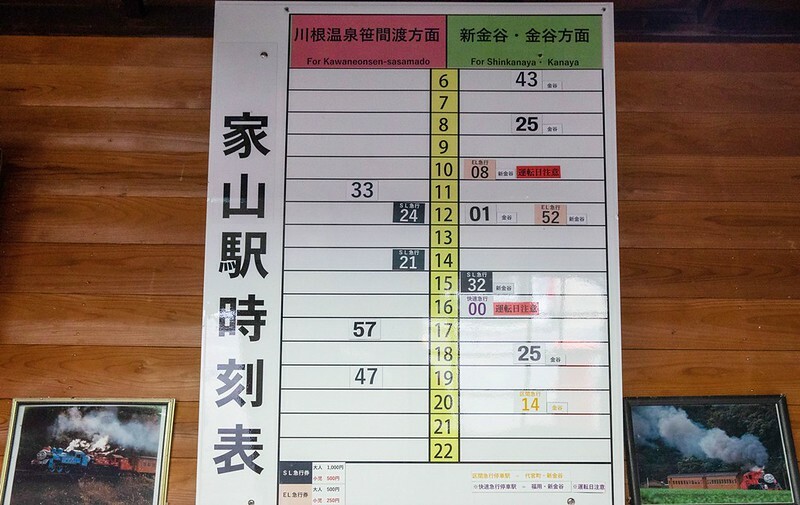 家山駅時刻表
川根温泉笹間渡方面 新金谷・金谷方面
For Kawaneonsen-sasamado For Shinkanaya・Kanaya
6 43 金谷
7
8 25 金谷
9
10 EL急行 08 新金谷 運転日注意
33 11
SL急行 24 12 01 金谷 EL急行 52 新金谷
13
SL急行 21 14
15 SL急行 32 新金谷
16 快速急行 00 運転日注意
57 17
18 25 金谷
47 19
20 区間急行 14 金谷
21
22
SL急行券 大人 1,000円 小児 500円
EL急行券 大人 500円 小児 250円
区間急行停車駅 － 代官町・新金谷
※快速急行停車駅 － 福用・新金谷 ※運転日注意